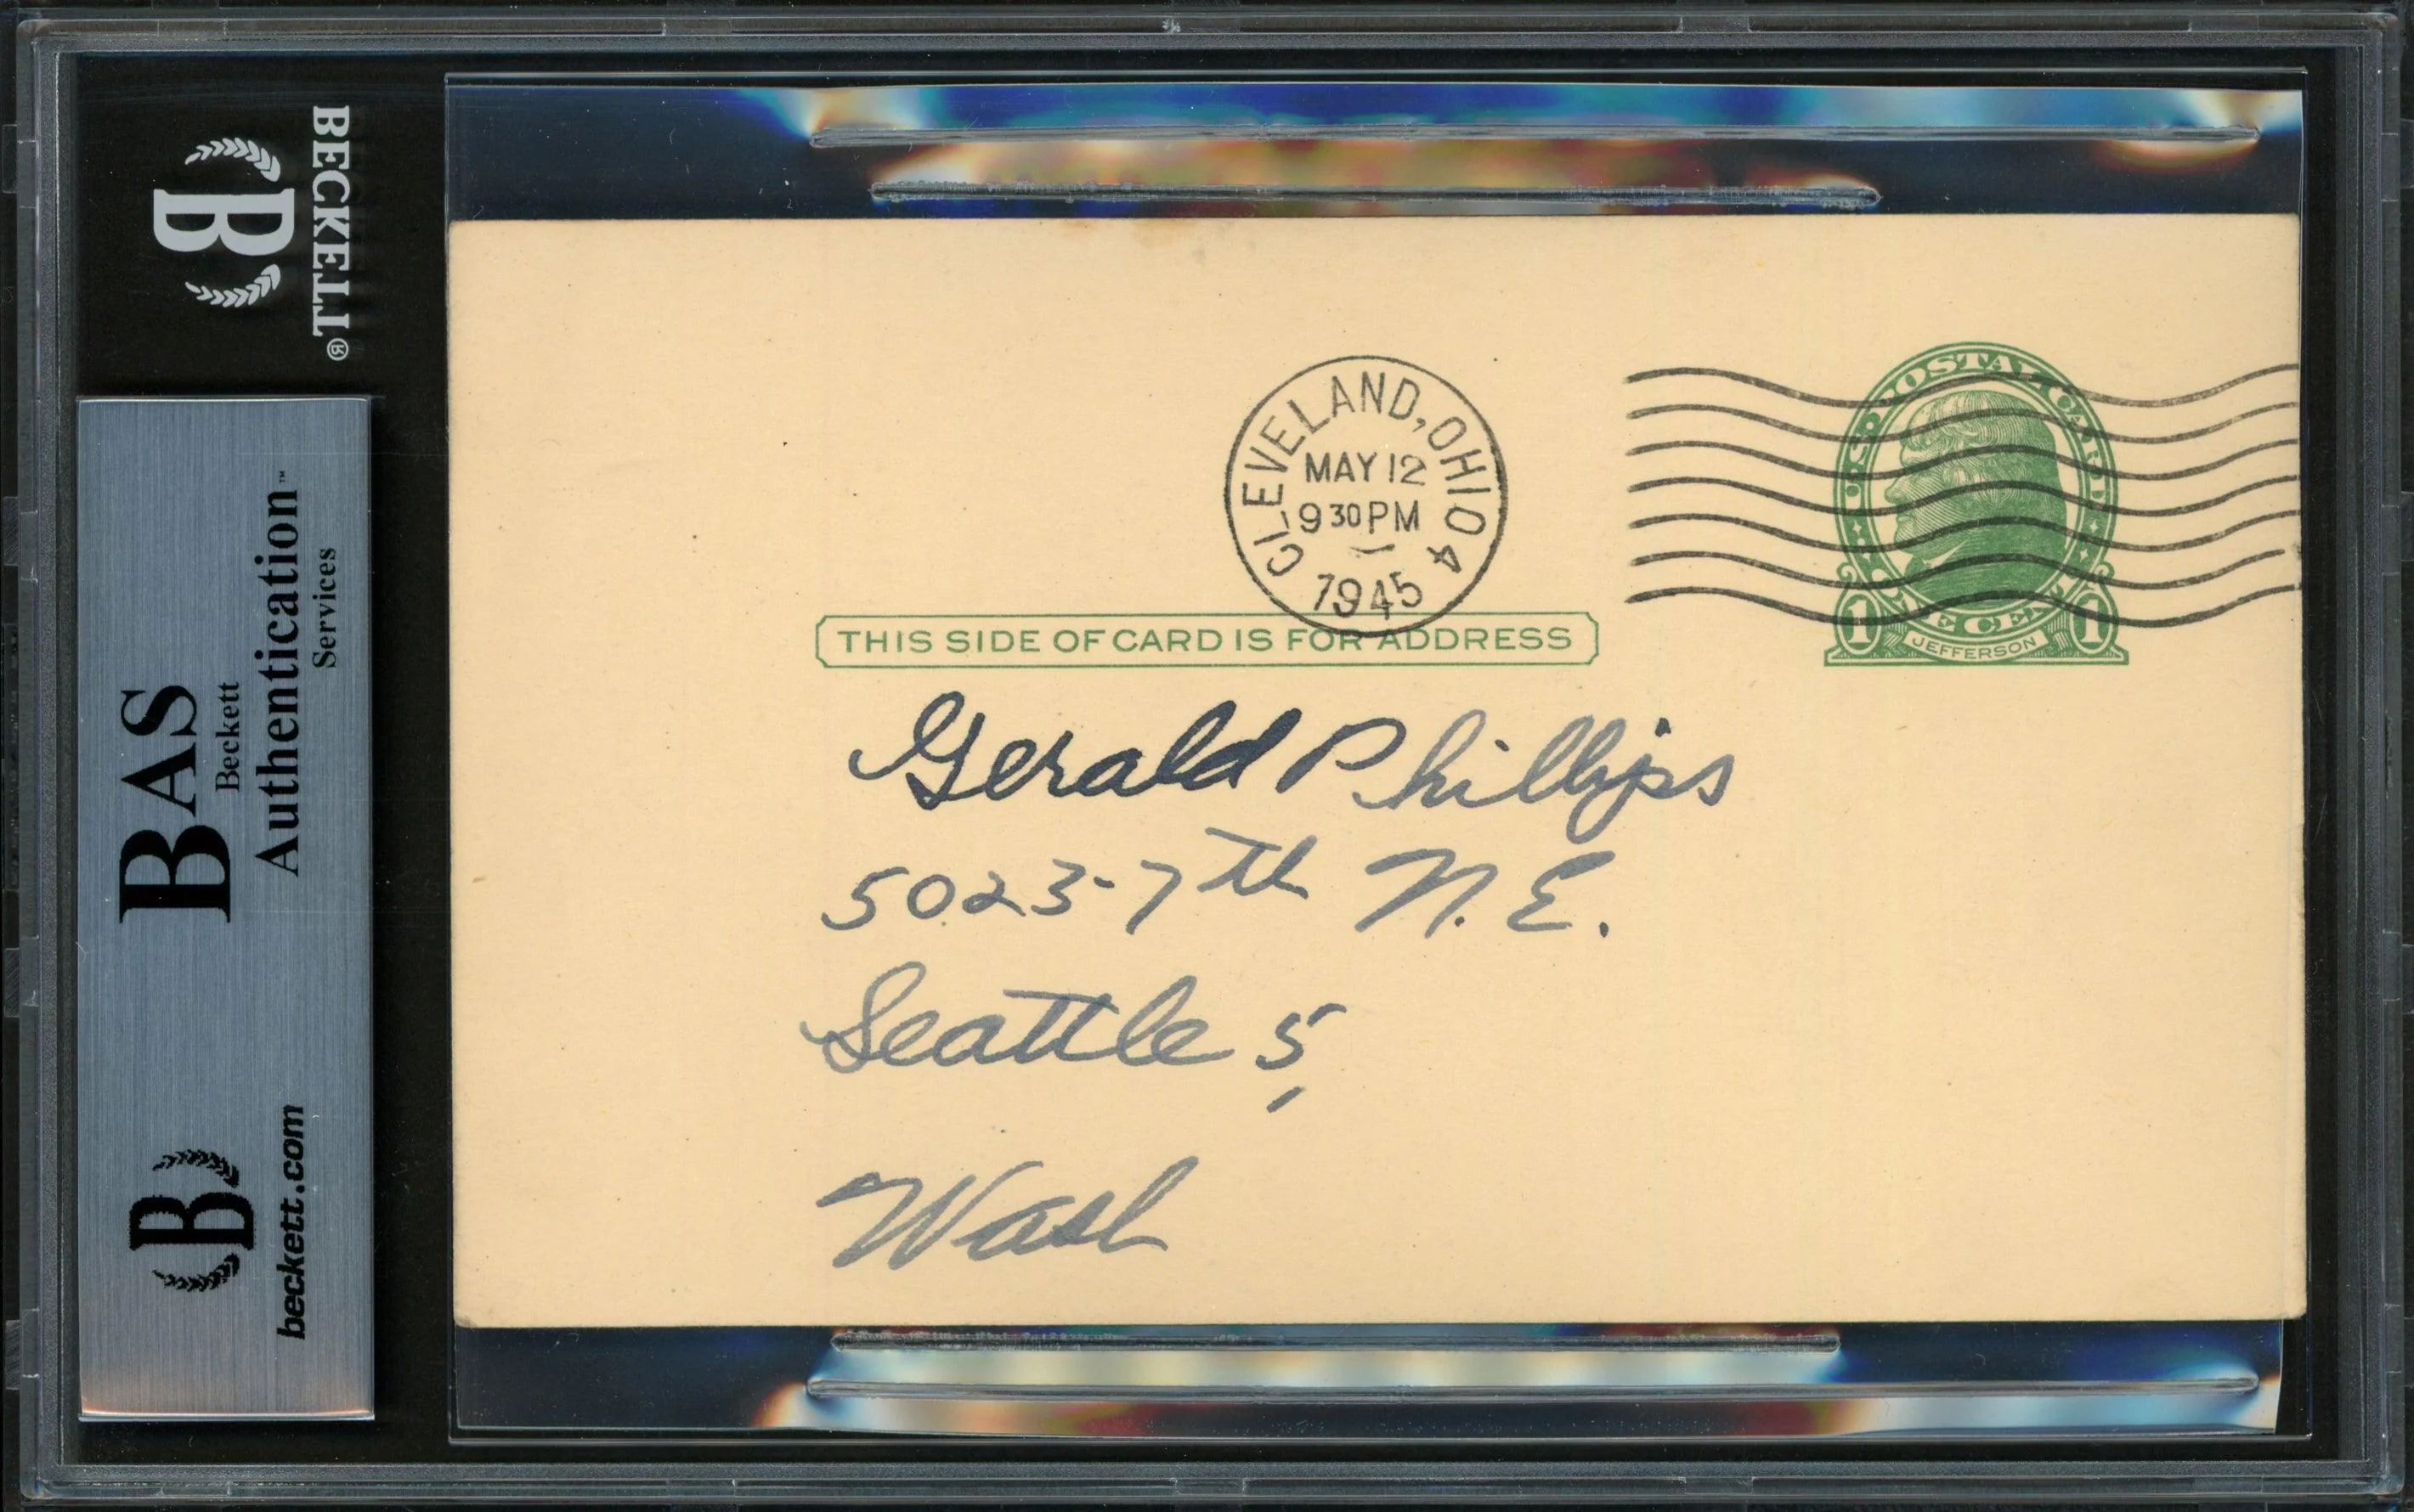 BECKETT®
B
BAS
Beckett
Authentication™
Services
B
beckett.com
CLEVELAND, OHIO 4
MAY 12
9 30 PM
1945
U.S. POSTAL CARD
1 ONE CENT 1
JEFFERSON
THIS SIDE OF CARD IS FOR ADDRESS
Gerald Phillips
5023-7th N.E.
Seattle 5,
Wash